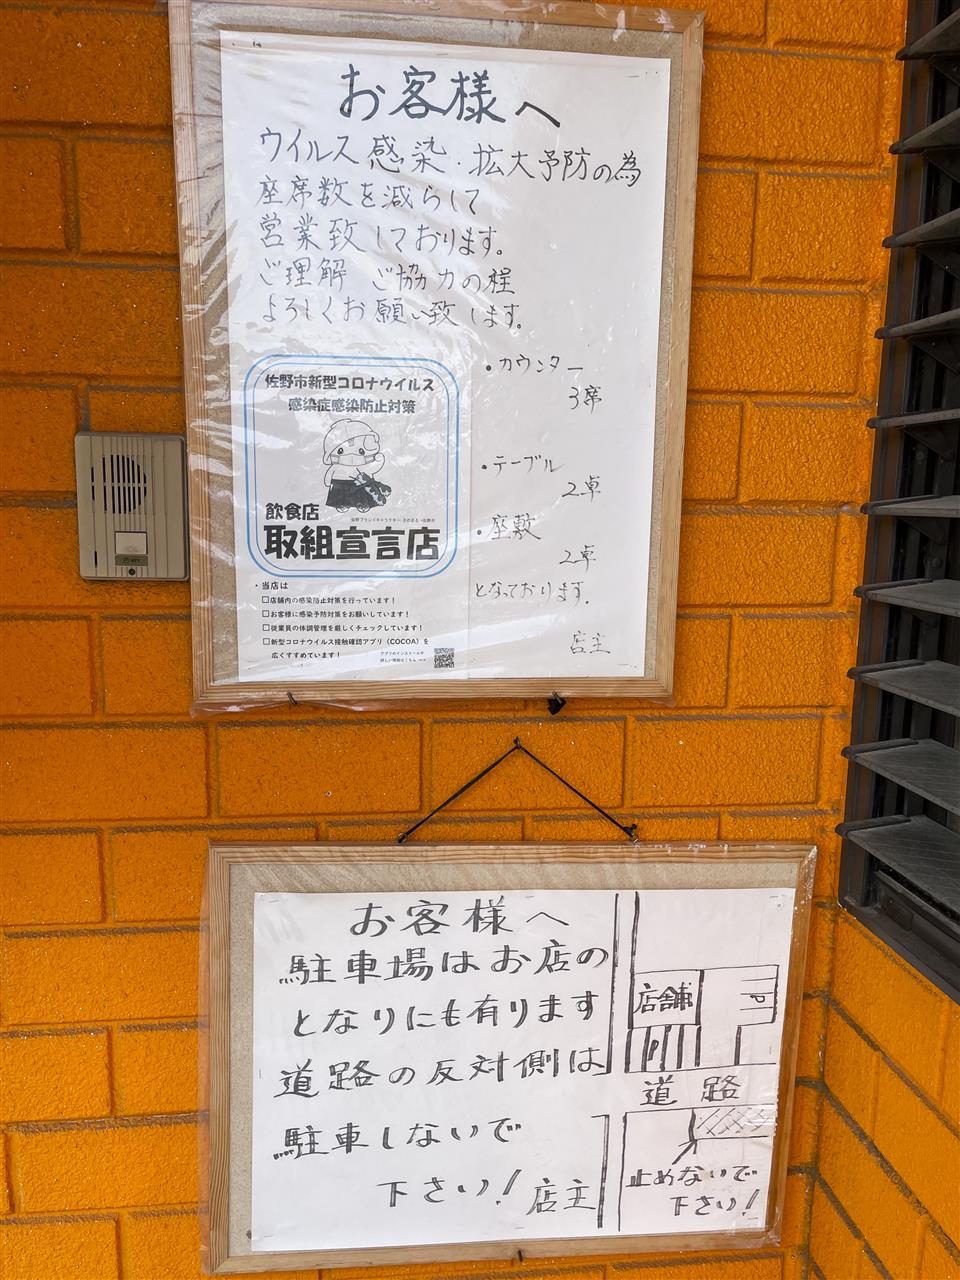 お客様へ
ウイルス感染・拡大予防の為
座席数を減らして
営業致しております。
ご理解 ご協力の程
よろしくお願い致します。
・カウンター
3席
・テーブル
2卓
・座敷
2卓
となっております。
店主
佐野市新型コロナウイルス
感染症感染防止対策
飲食店
佐野ブランドキャラクター さのまる ©佐野市
取組宣言店
・当店は
□店舗内の感染防止対策を行っています!
□お客様に感染予防対策をお願いしています!
□従業員の体調管理を厳しくチェックしています!
□新型コロナウイルス接触確認アプリ(COCOA)を
広くすすめています!
アプリのインストールや
詳しい情報はこちら
お客様へ
駐車場はお店の
となりにも有ります
道路の反対側は
駐車しないで
下さい! 店主
店舗
P
P
道路
止めないで
下さい!